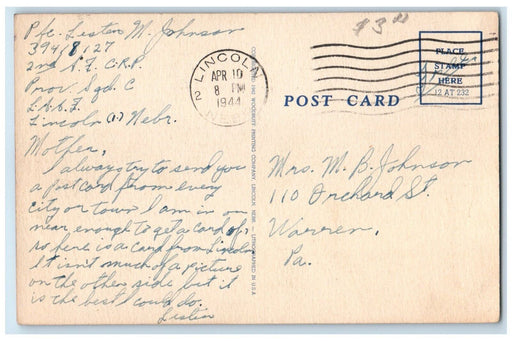 Pfc. Lester M. Johnson
2nd A.F. C.R.P.
Prov. Sqd. C
L.A.A.F.
Lincoln (1) Nebr.
Mother,
I always try to send you
a postcard from every
city or town I am in or
near enough to get a card of,
so here is a card from Lincoln.
It isn't much of a picture
on the other side but it
is the best I could do.
Lester
LINCOLN
2
APR 10
8 PM
1944
NEBR.
$3
PLACE
STAMP
HERE
12 AT 232
POST CARD
WOODRUFF PRINTING COMPANY, LINCOLN, NEBR. — LITHOGRAPHED IN U.S.A.
Mrs. M. B. Johnson
110 Orchard St.
Warren,
Pa.